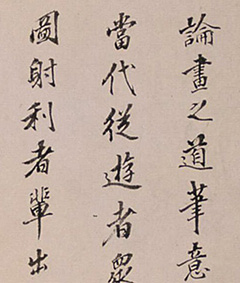 論畫之道筆意
當代從遊者眾
圖射利者輩出